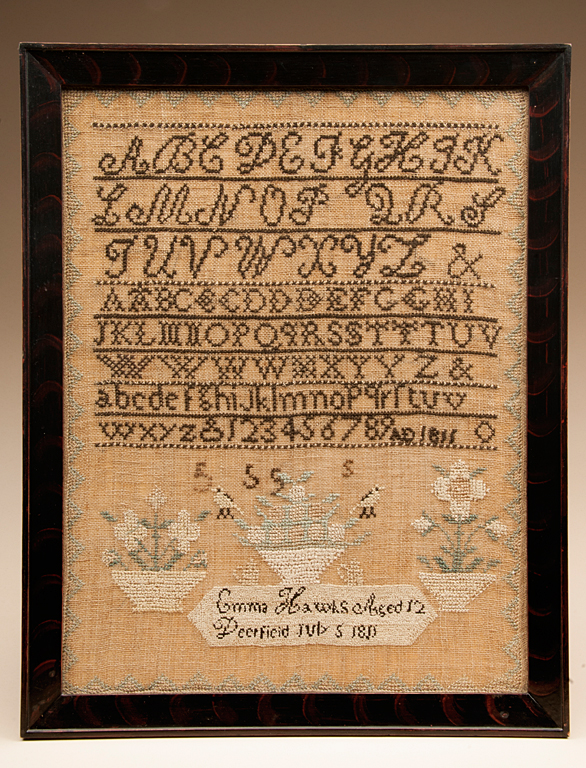 A B C D E F G H I K
L M N O P Q R S
T U V W X Y Z &
A A B C C D D E F G H I
J K L M N O P Q R S S T T T U V
W W W X Y Y Z &
a b c d e f g h i j k l m n o p q r ſ t u v
w x y z & 1 2 3 4 5 6 7 8 9 AD 1811 O
5 5 5 5
Emma Hawks Aged 12
Deerfield July 5 1811